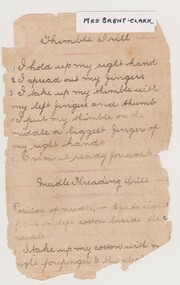 MRS BRENT-CLARK.
Thimble Drill
1 I hold up my right hand
2 I spread out my fingers
3 I take up my thimble with
my left finger and thumb
4 I put my thimble on the
middle or biggest finger of
my right hand
ready for work
Needle Threading Drill
Position of needle,
cotton beside the
needle
1 I take up my cotton with my
right forefinger &